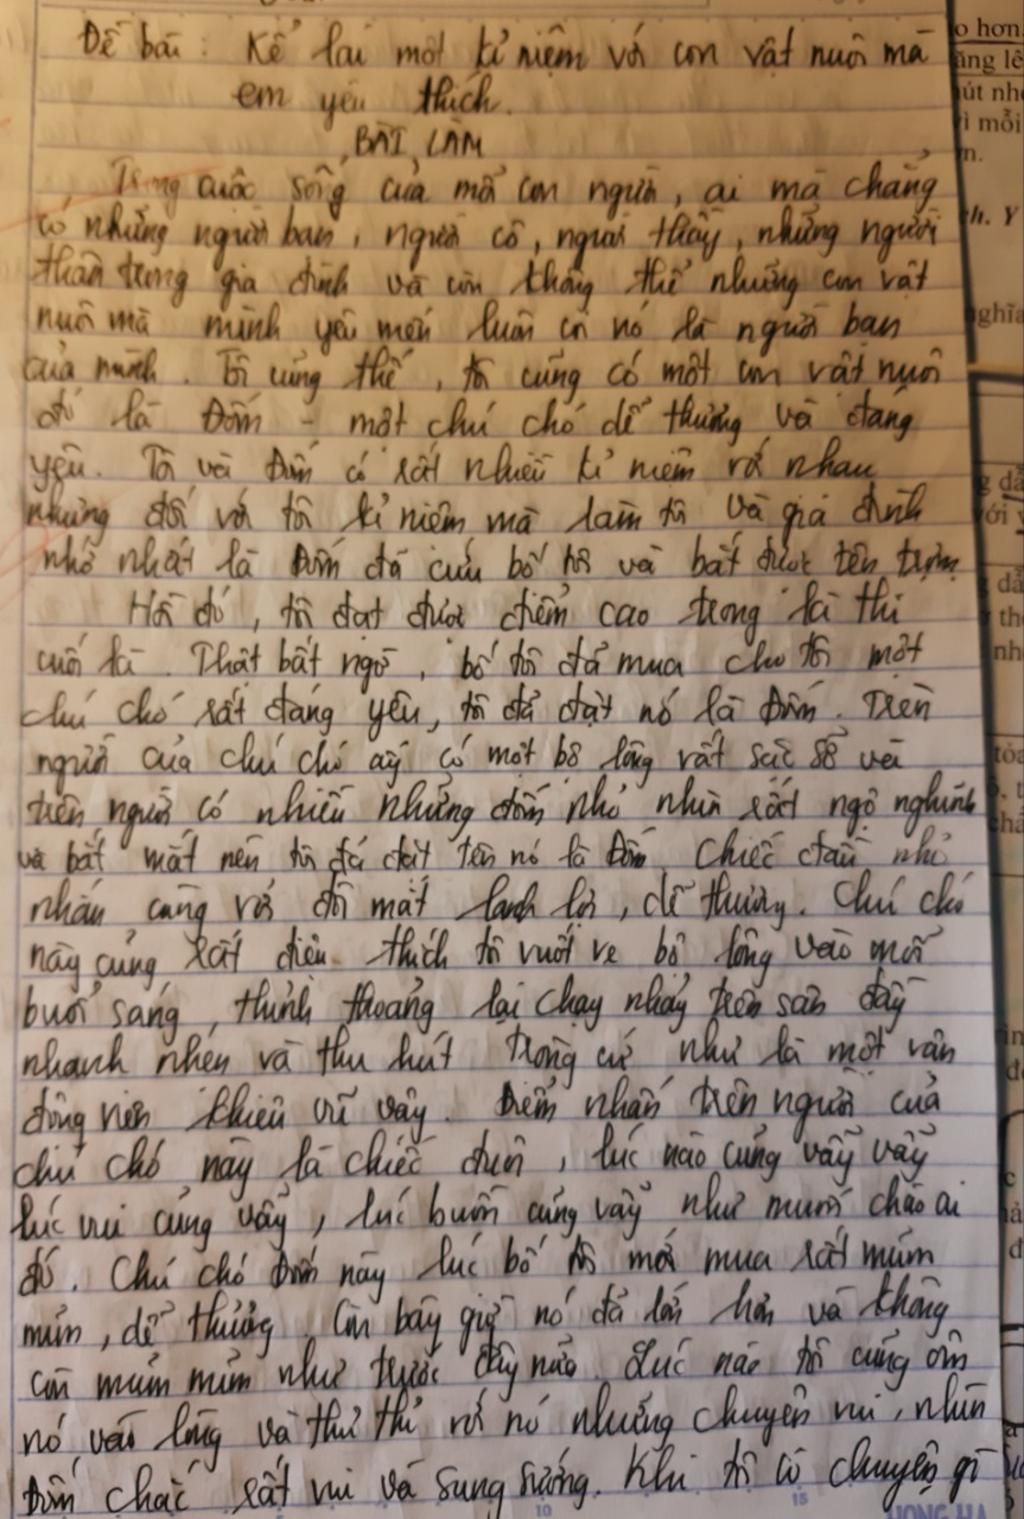 Đề bài: Kể lại một kỉ niệm với con vật nuôi mà
em yêu thích.
BÀI LÀM
Trong cuộc sống của mỗi con người, ai mà chẳng
có những người bạn, người cô, người thầy, những người
thân trong gia đình và còn không thể những con vật
nuôi mà mình yêu mến luôn coi nó là người bạn
của mình. Tôi cũng thế, tôi cũng có một con vật nuôi
đó là Đốm - một chú chó dễ thương và đáng
yêu. Tôi và Đốm có rất nhiều kỉ niệm với nhau
nhưng đối với tôi kỉ niệm mà làm tôi và gia đình
nhớ nhất là Đốm đã cứu bố tôi và bắt được tên trộm
Hồi đó, tôi đạt được điểm cao trong kì thi
cuối kì. Thật bất ngờ, bố tôi đã mua cho tôi một
chú chó rất đáng yêu, tôi đã đặt nó là Đốm. Trên
người của chú chó ấy có một bộ lông rất sặc sỡ và
trên người có nhiều những đốm nhỏ nhìn rất ngộ nghĩnh
và bắt mắt nên tôi đã đặt tên nó là Đốm. Chiếc đầu nhỏ
nhắn cùng với đôi mắt lanh lợi, dễ thương. Chú chó
này cũng rất điệu thích tôi vuốt ve bộ lông vào mỗi
buổi sáng, thỉnh thoảng lại chạy nhảy trên sân đầy
nhanh nhẹn và thu hút trông cứ như là một vận
động viên khiêu vũ vậy. Điểm nhấn trên người của
chú chó này là chiếc đuôi, lúc nào cũng vẫy vẫy
lúc vui cũng vẫy, lúc buồn cũng vẫy như muốn chào ai
đó. Chú chó Đốm này lúc bố tôi mới mua rất mũm
mĩm, dễ thương. Còn bây giờ nó đã lớn hơn và không
còn mũm mĩm như trước đây nào. Lúc nào tôi cũng ôm
nó vào lòng và thủ thỉ với nó những chuyện vui, nhìn
Đốm chắc rất vui và sung sướng. Khi tôi có chuyện gì